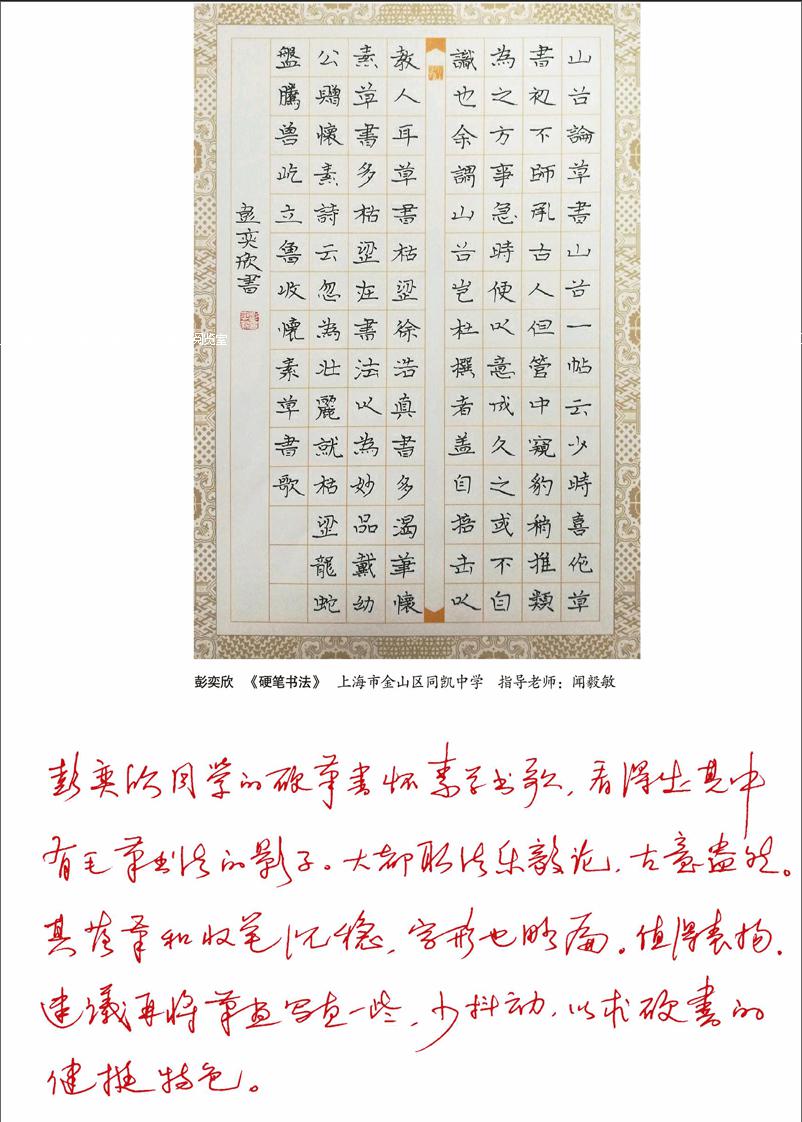 山谷論草書山谷一帖云少時喜作草
書初不師承古人但管中窺豹稍推類
為之方事急時便以意成久之或不自
識也余謂山谷豈杜撰者蓋自掊击以
教人耳草書枯澀徐浩真書多渴筆懷
素草書多枯澀在書法以為妙品戴幼
公贈懷素詩云忽為壯麗就枯澀龍蛇
盤騰兽屹立魯收懷素草書歌
彭奕欣書
阅览室
彭奕欣 《硬笔书法》 上海市金山区同凯中学 指导老师：闻毅敏
彭奕欣同学的硬笔書怀素草书歌，看得出其中
有毛笔书法的影子。大都取法乐毅论，古意盎然。
其落笔和收笔沉稳，字形也略扁。值得表扬。
建议再将笔画写直一些，少抖动，以求硬書的
健挺特色。